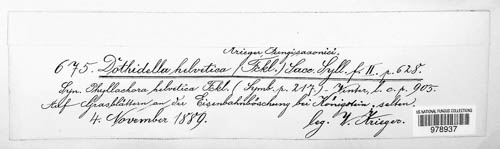 Krieger, Fungi saxonici.
675. Dothidella helvetica (Fckl.) Sacc. Syll. f. II. p. 628.
Syn. Phyllachora helvetica Fckl. (Symb. p. 217.) – Winter, l. c. p. 905.
Auf Grasblättern an der Eisenbahnböschung bei Königstein, selten.
4. November 1889. leg. W. Krieger.
US NATIONAL FUNGUS COLLECTIONS
978937